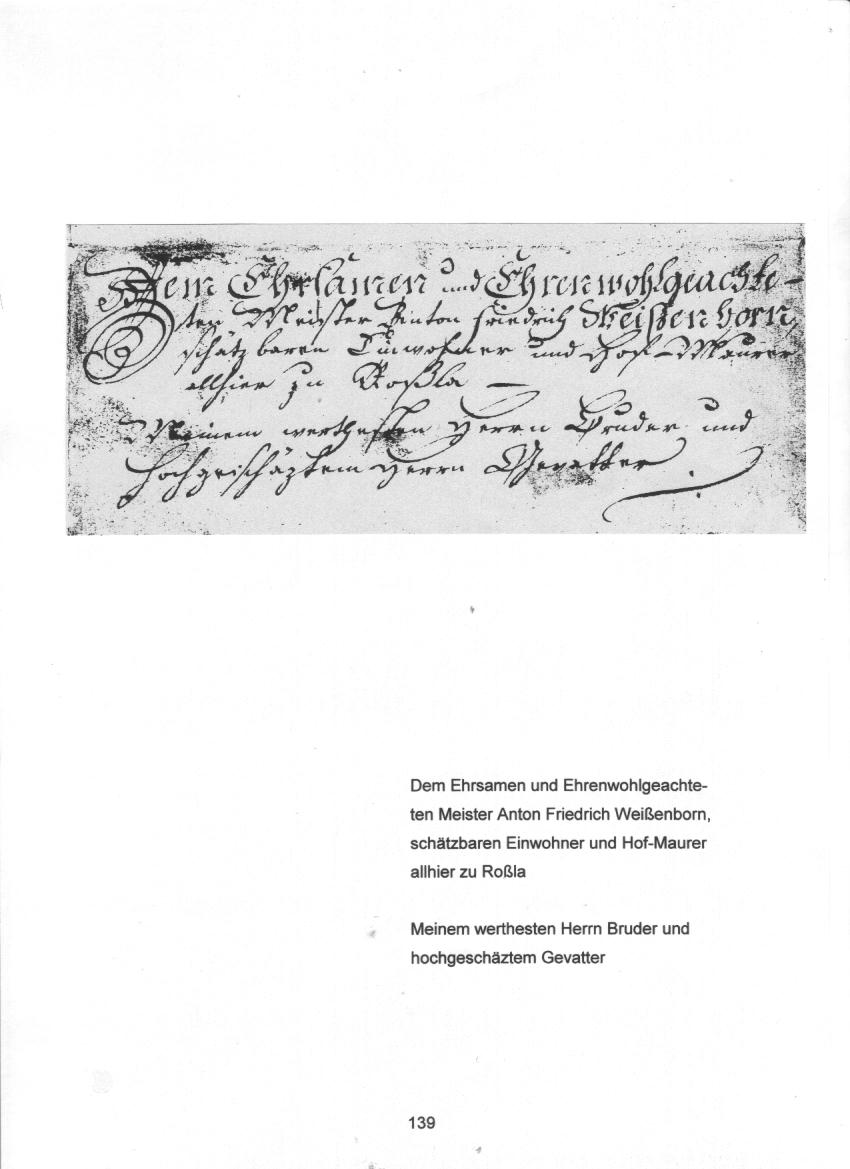 Dem Ehrsamen und Ehrenwohlgeachte-
ten Meister Anton Friedrich Weißenborn,
schätzbaren Einwohner und Hof-Maurer
allhier zu Roßla —
Meinem werthesten Herrn Bruder und
hochgeschäztem Herrn Gevatter.
Dem Ehrsamen und Ehrenwohlgeachte-
ten Meister Anton Friedrich Weißenborn,
schätzbaren Einwohner und Hof-Maurer
allhier zu Roßla
Meinem werthesten Herrn Bruder und
hochgeschäztem Gevatter
139